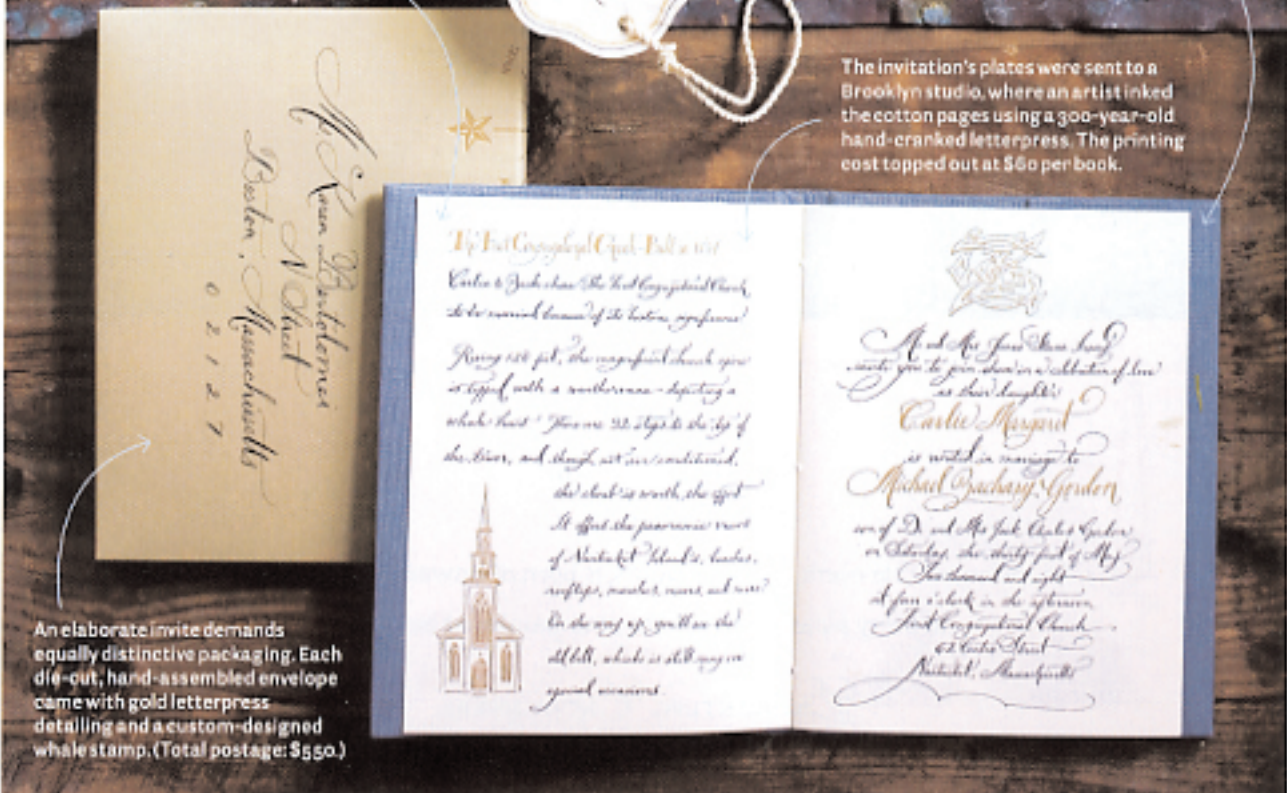 The invitation's plates were sent to a
Brooklyn studio, where an artist inked
the cotton pages using a 300-year-old
hand-cranked letterpress. The printing
cost topped out at $60 per book.
Karen Bartolomei
N Street
Boston, Massachusetts
0 2 1 2 7
The First Congregational Church - Built in
Carlie & Zack chose The First Congregational Church
to be married because of its historic significance
Rising 120 feet, the magnificent church spire
is topped with a weathervane depicting a
whale hunt. There are 92 steps to the top of
the tower, and though not air conditioned,
the climb is worth the effort
It offers the panoramic views
of Nantucket Island's beaches,
rooftops, marshes, moors, and more
On the way up, you'll see the
old bell, which is still rung on
special occasions.
Mr and Mrs
invite you to join them in a celebration of love
as their daughter
Carlie Margaret
is united in marriage to
Michael Zachary Gordon
son of Dr. and Mrs Jack Charles Gordon
on Saturday, the thirty first of May
Two thousand and eight
at four o'clock in the afternoon
First Congregational Church
62 Centre Street
Nantucket, Massachusetts
An elaborate invite demands
equally distinctive packaging. Each
die-cut, hand-assembled envelope
came with gold letterpress
detailing and a custom-designed
whale stamp. (Total postage: $550.)